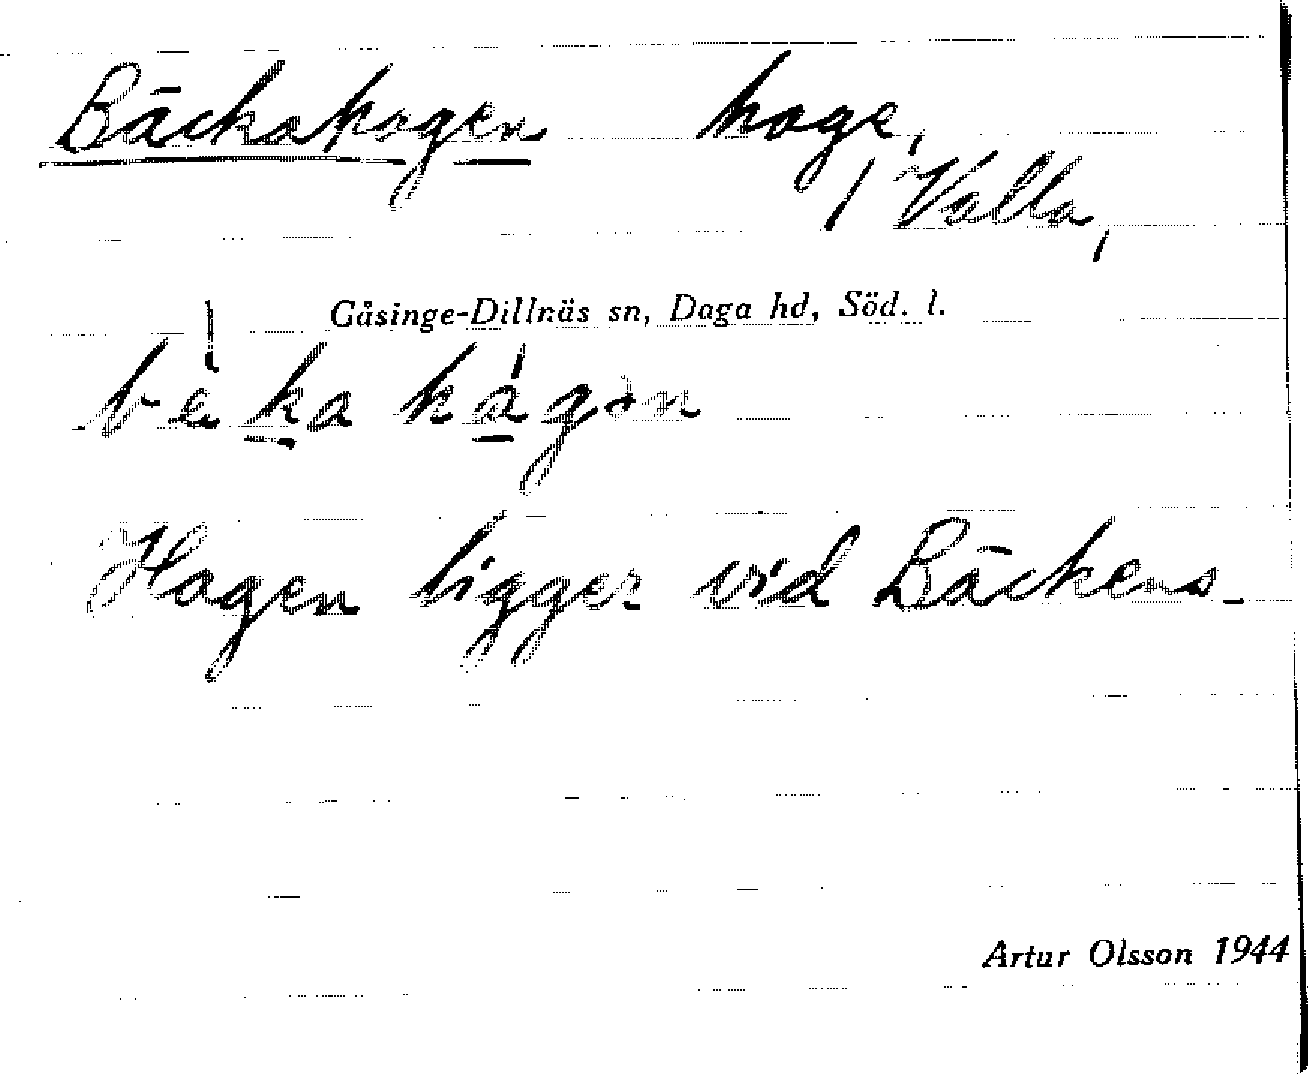 Bäckahagen hage,
/ Valla,
Gåsinge-Dillnäs sn, Daga hd, Söd. l.
bèka hágən
Hagen ligger vid Bäckens-
Artur Olsson 1944